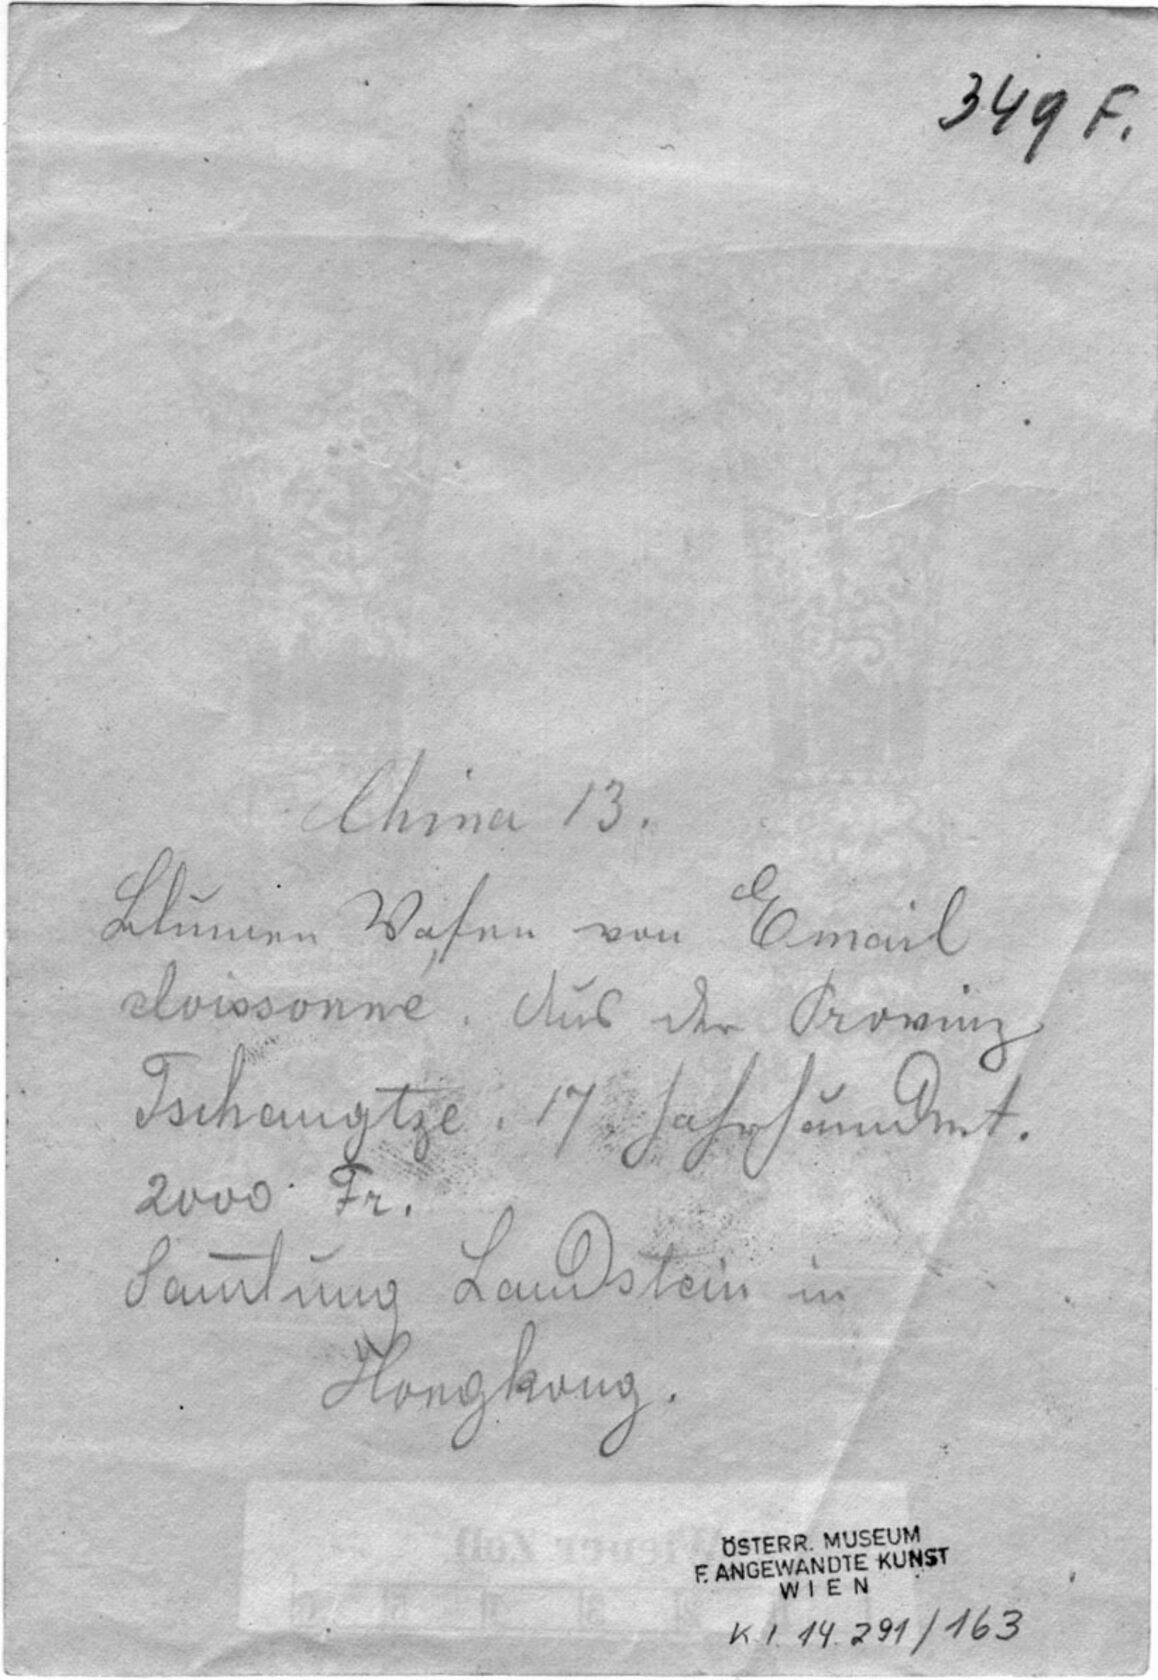 349 F.
China 13.
Blumen Vasen von Email
cloissonne. Aus der Provinz
Tschangtze. 17 Jahrhundert.
2000 Fr.
Sam̄lung Landstein in
Hongkong.
Wiener Zoll
ÖSTERR. MUSEUM
F. ANGEWANDTE KUNST
WIEN
K. I. 14.291/163